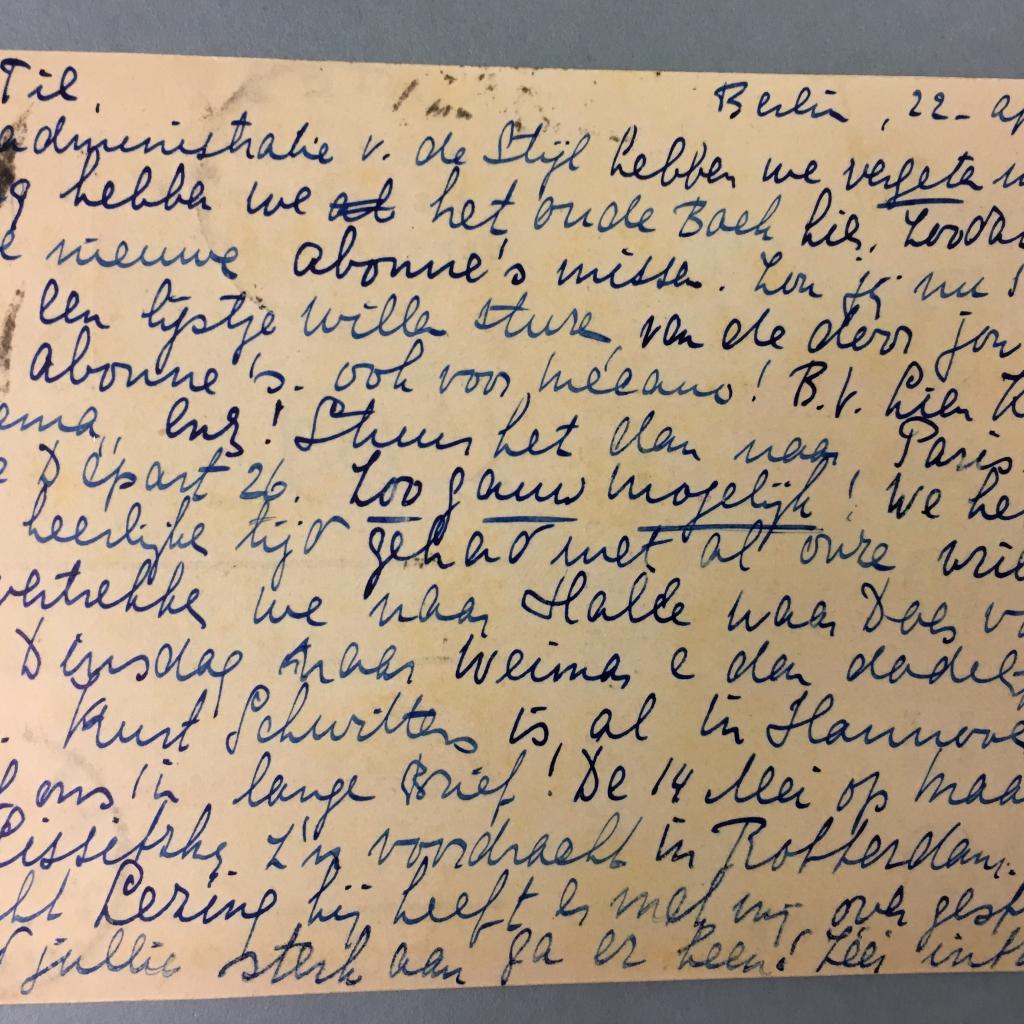 Til,
Berlin, 22- ap
administratie v. de Stijl hebben we vergeten
g hebben we het oude Boek hier. Zoodat
e nieuwe abonné's missen. Zou jij nu
een lijstje willen sturen, van de door jou
abonné's. ook voor mécano! B.V. Lien
ema, enz! Stuur het dan naar Paris
Départ 26. Zoo gauw mogelijk! We he
heerlijke tijd gehad met al onze vrie
vertrekken we naar Halle waar Does v
Dinsdag naar Weimar e dan dadelij
. Kurt Schwitters is al in Hannove
ons 'n lange Brief! De 14 Mei op maa
Lissitzky z'n voordracht in Rotterdam.
ht Lezing hij heeft er met mij over gesp
jullie sterk aan ga er heen! Zeer int